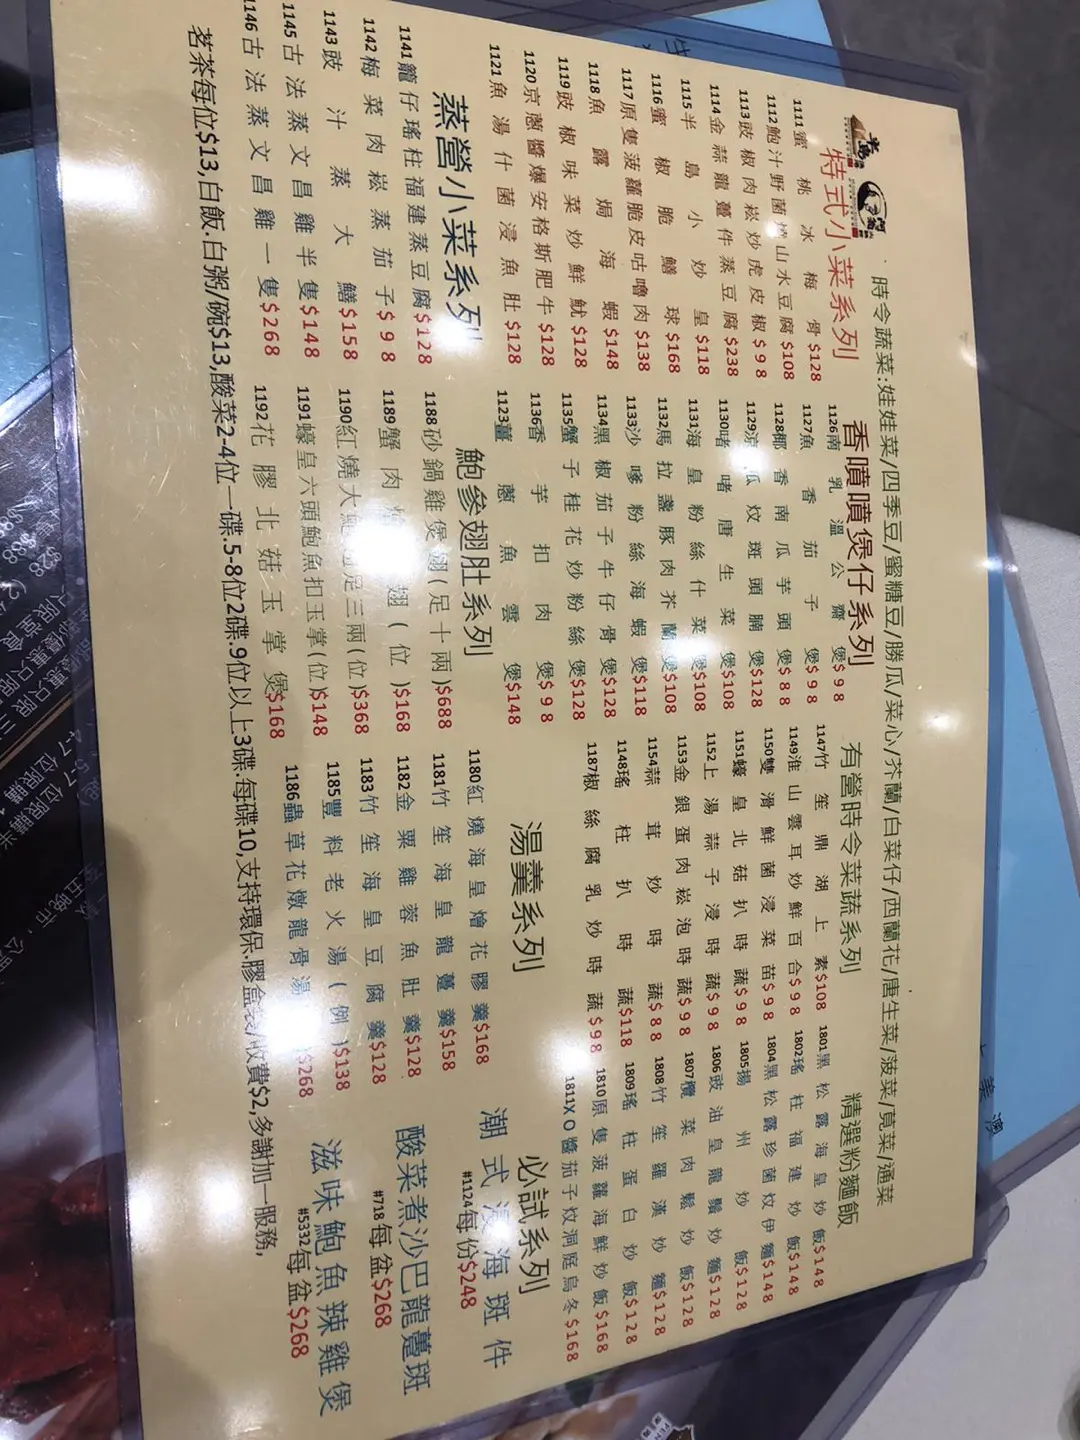 時令蔬菜:娃娃菜/四季豆/蜜糖豆/勝瓜/菜心/芥蘭/白菜仔/西蘭花/唐生菜/菠菜/莧菜/通菜
特式小菜系列
1111蜜桃冰梅骨$128
1112鮑汁野菌山水豆腐$108
1113豉椒肉崧炒虎皮椒$98
1114金蒜龍躉件蒸豆腐$238
1115半島小炒皇$118
1116蜜椒脆鱔球$168
1117原隻菠蘿脆皮咕嚕肉$138
1118魚露焗海蝦$148
1119豉椒味菜炒鮮魷$128
1120京蔥醬爆安格斯肥牛$128
1121魚湯什菌浸魚肚$128
蒸營小菜系列
1141籠仔瑤柱福建蒸豆腐$128
1142梅菜肉崧蒸茄子$98
1143豉汁蒸大鱔$158
1145古法蒸文昌雞半隻$148
1146古法蒸文昌雞一隻$268
香噴噴煲仔系列
1126南乳溫公齋煲$98
1127魚香茄子煲$98
1128椰香南瓜芋頭煲$88
1129涼瓜炆斑頭腩煲$128
1130啫啫唐生菜煲$108
1131海皇粉絲什菜煲$108
1132馬拉盞豚肉芥蘭煲$108
1133沙嗲粉絲海蝦煲$118
1134黑椒茄子牛仔骨煲$128
1135蟹子桂花炒粉絲煲$128
1136香芋扣肉煲$98
1123薑蔥魚雲煲$148
鮑參翅肚系列
1188砂鍋雞煲翅(足十兩)$688
1189蟹肉翅(位)$168
1190紅燒大足三兩(位)$368
1191蠔皇六頭鮑魚扣玉掌(位)$148
1192花膠北菇玉掌煲$168
有營時令菜蔬系列
1147竹笙鼎湖上素$108
1149淮山雲耳炒鮮百合$98
1150雙滑鮮菌浸菜苗$98
1151蠔皇北菇扒時蔬$98
1152上湯蒜子浸時蔬$98
1153金銀蛋肉崧泡時蔬$98
1154蒜茸炒時蔬$88
1148瑤柱扒時蔬$118
1187椒絲腐乳炒時蔬$98
湯羹系列
1180紅燒海皇燴花膠羹$168
1181竹笙海皇龍躉羹$158
1182金粟雞蓉魚肚羹$128
1183竹笙海皇豆腐羹$128
1185豐料老火湯(例)$138
1186蟲草花燉龍骨湯$268
精選粉麵飯
1801黑松露海皇炒飯$148
1802瑤柱福建炒飯$148
1804黑松露珍菌炆伊麵$148
1805揚州炒飯$128
1806豉油皇龍鬚炒麵$128
1807欖菜肉鬆炒飯$128
1808竹笙羅漢炒麵$128
1809瑤柱蛋白炒飯$128
1810原隻菠蘿海鮮炒飯$168
1811XO醬茄子炆洞庭烏冬$168
必試系列
潮式浸海斑件
#1124每份$248
酸菜煮沙巴龍躉斑
#718每盆$268
滋味鮑魚辣雞煲
#5332每盆$268
茗茶每位$13,白飯.白粥/碗$13,酸菜2-4位一碟.5-8位2碟.9位以上3碟.每碟10,支持環保.膠盒袋/收費$2,多謝加一服務,